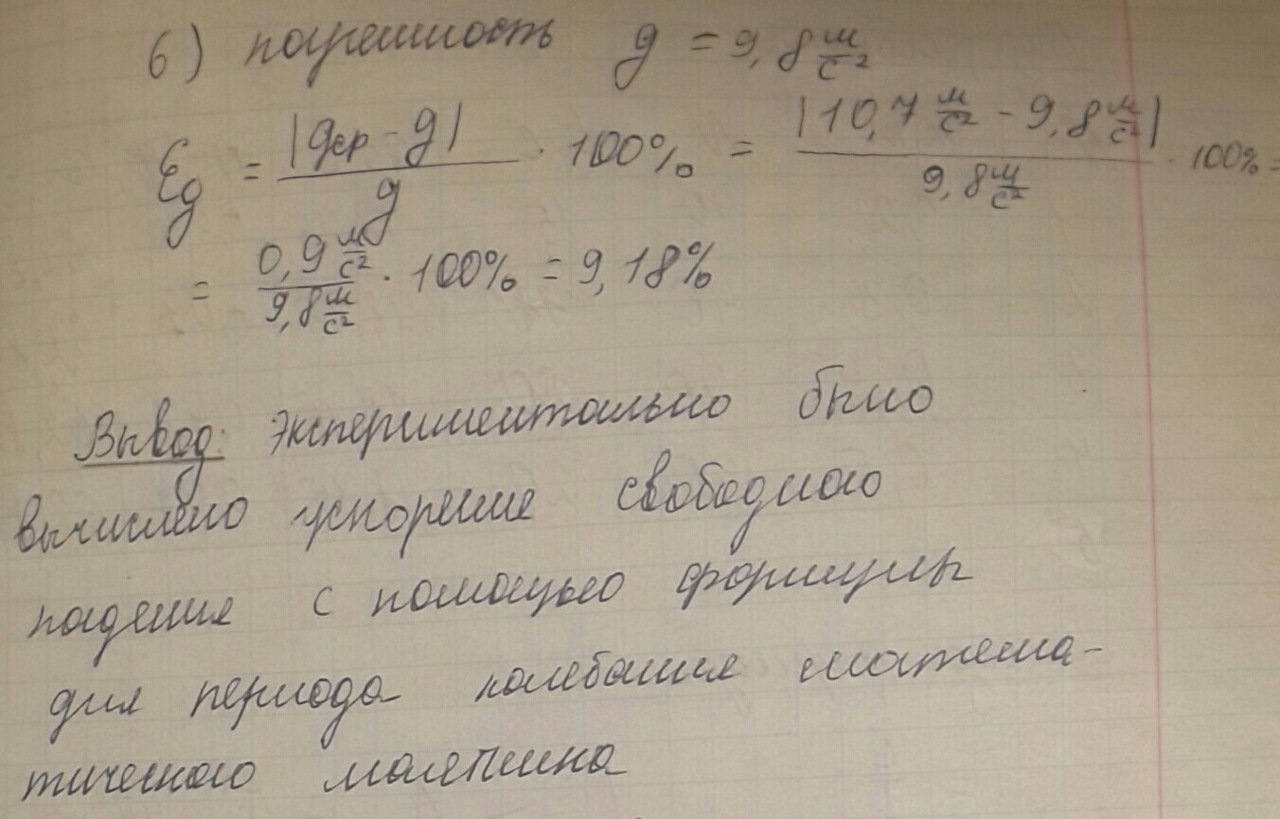 6) погрешность g = 9,8 м/с²
εg = |gср - g| / g · 100% = |10,7 м/с² - 9,8 м/с²| / 9,8 м/с² · 100% =
= 0,9 м/с² / 9,8 м/с² · 100% = 9,18%
Вывод: экспериментально было
вычислено ускорение свободного
падения с помощью формулы
для периода колебания матема-
тического маятника